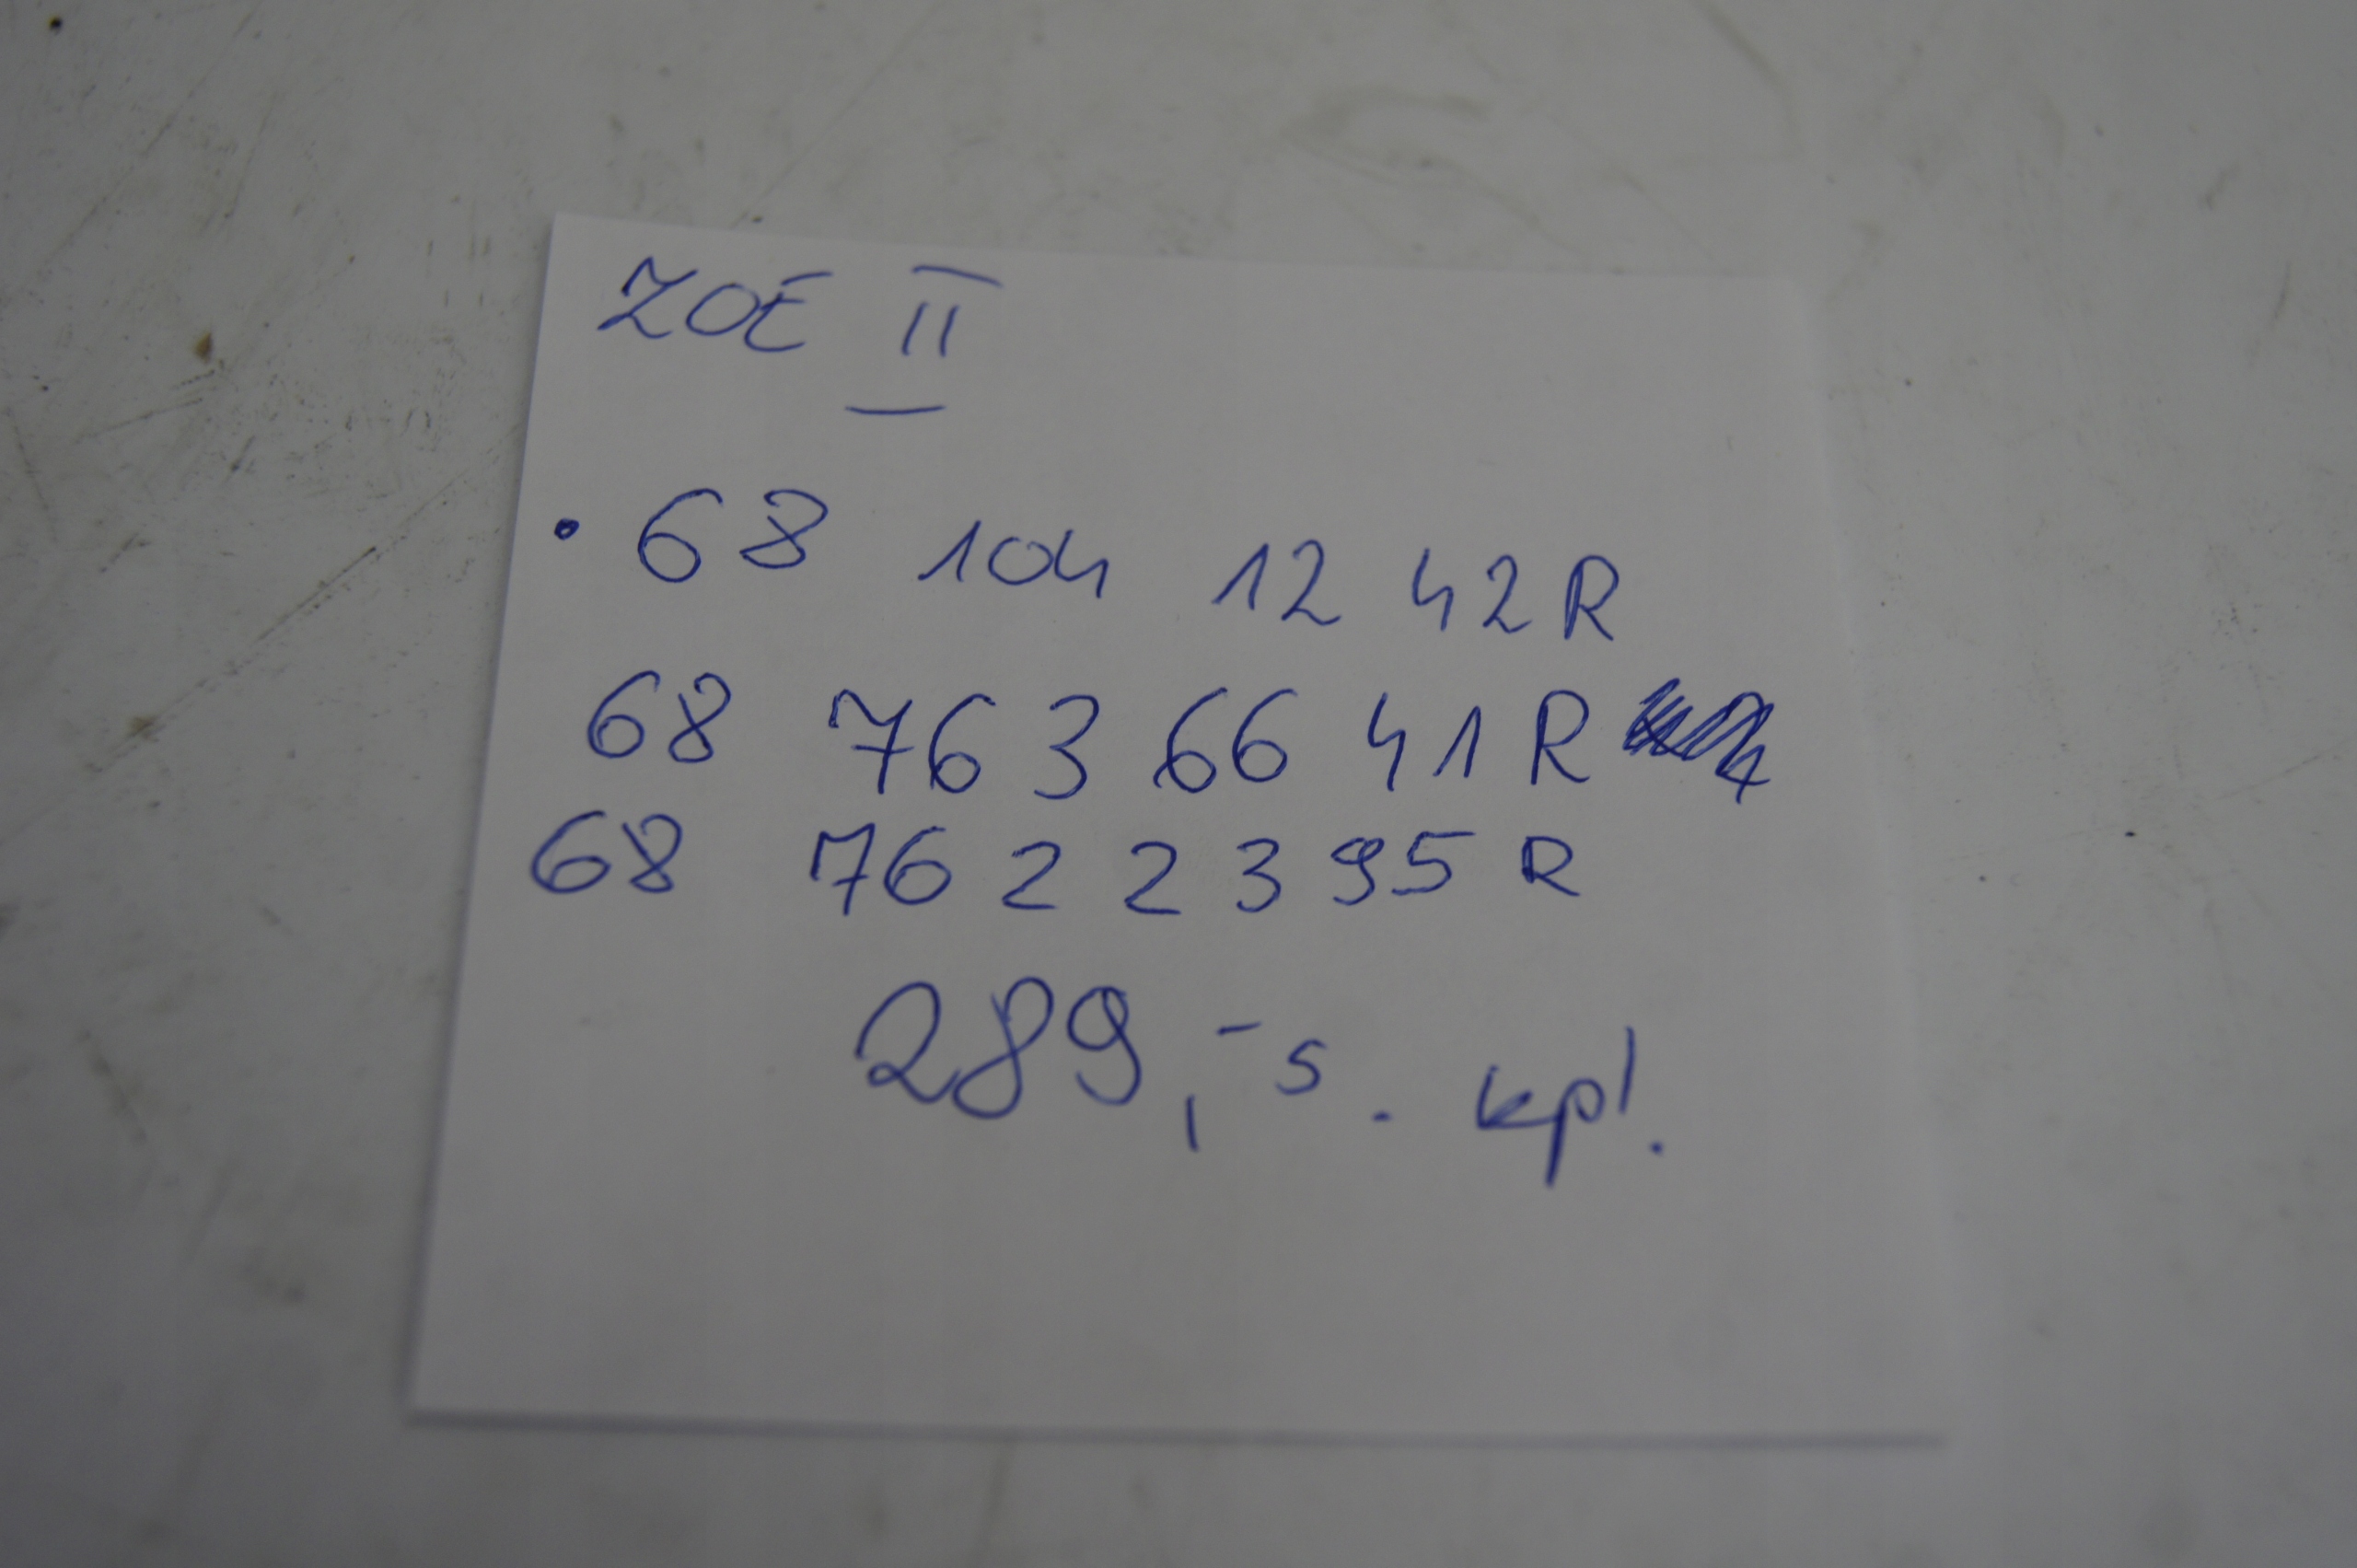 ZOE II
• 68 104 12 42 R
68 76 3 66 41 R
68 76 2 2 3 95 R
289,- s. kpl.